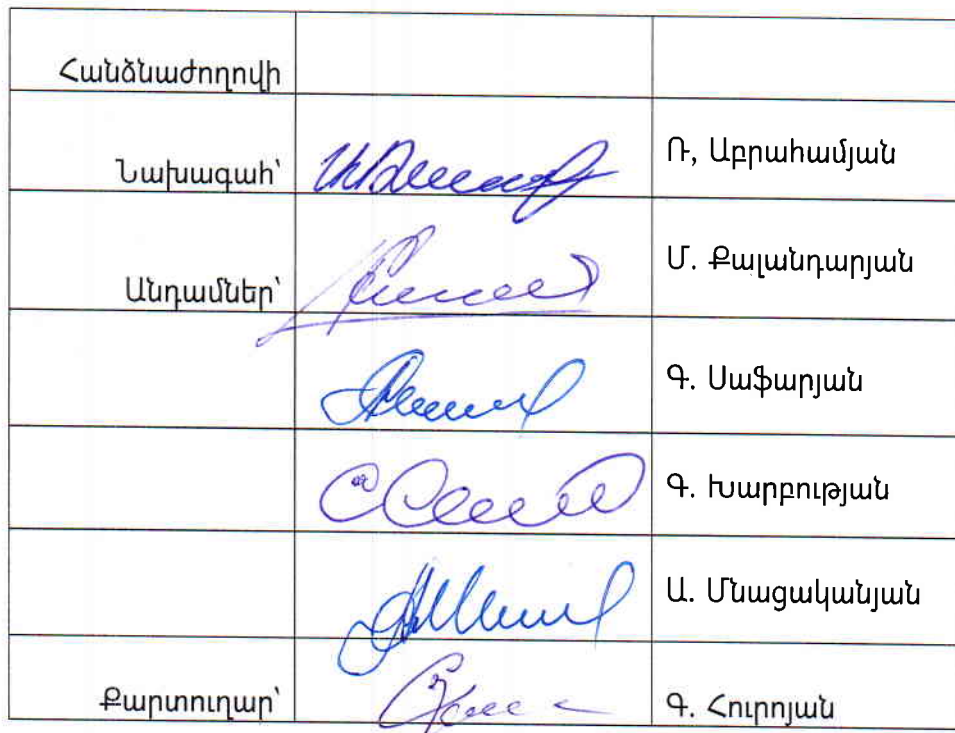 Հանձնաժողովի
Նախագահ՝ Ռ, Աբրահամյան
Անդամներ՝ Մ. Քալանդարյան
Գ. Սաֆարյան
Գ. Խարբության
Ա. Մնացականյան
Քարտուղար՝ Գ. Հուրոյան